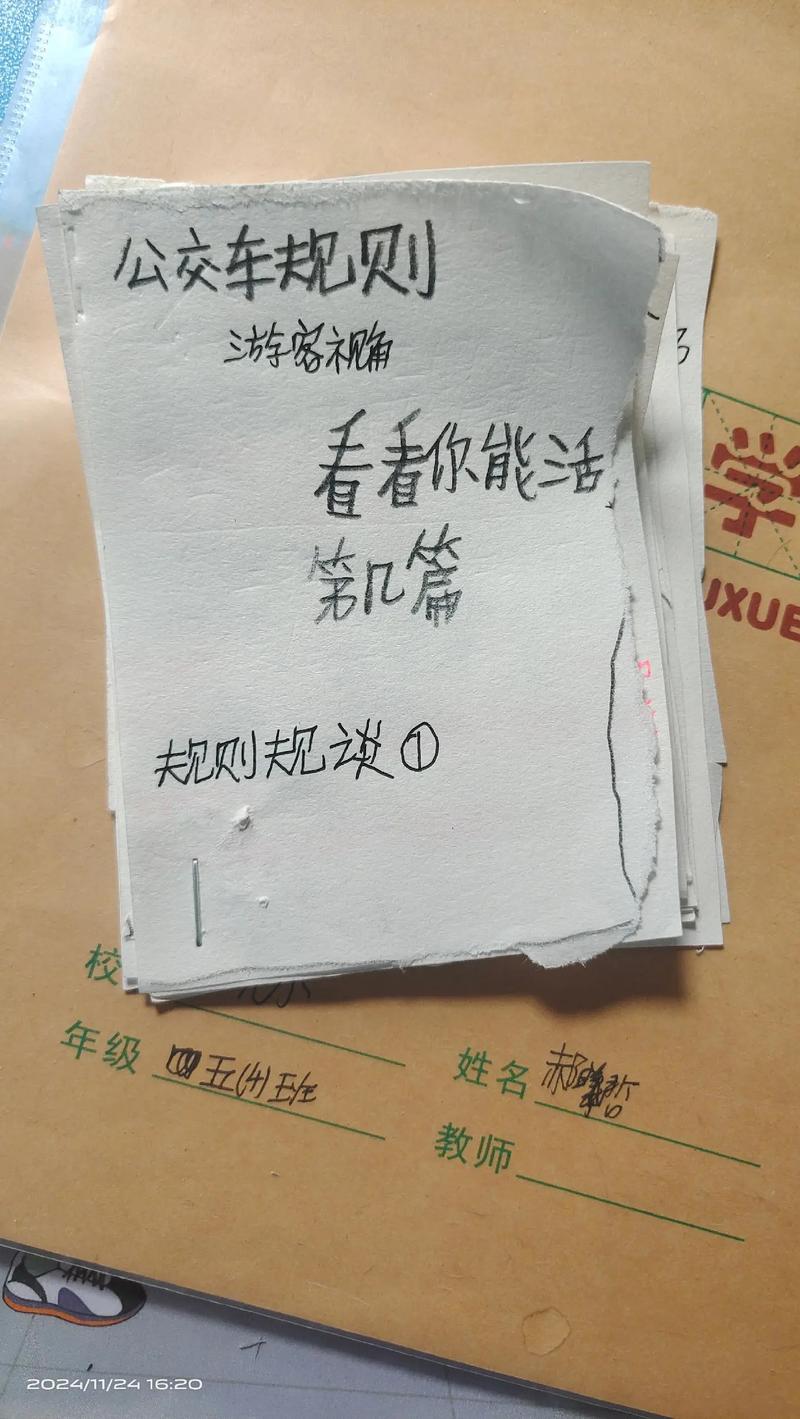 公交车规则
游客视角
看看你能活
第几篇
规则规谈①
学
UXUE
校
年级 五(4)班
姓名 郝
教师
2024/11/24 16:20